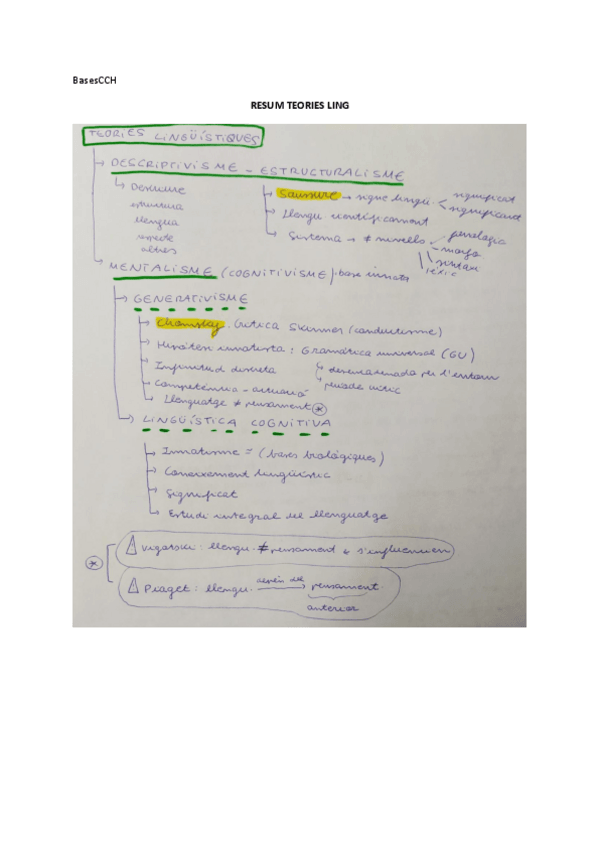 BasesCCH
RESUM TEORIES LING
TEORIES LINGÜÍSTIQUES
DESCRIPTIVISME - ESTRUCTURALISME
Descriure
estructura
llengua
respecte
altres
Saussure → signe lingü. significat
significant
Llengu científicament
Sistema → ≠ nivells fonologia
morfo
sintax
lèxic
MENTALISME (COGNITIVISME): base innata
GENERATIVISME
Chomsky. Crítica Skinner (conductisme)
Hipòtesi innatista: Gramàtica universal (GU)
desencadenada per l'entorn
període crític
Infinitud discreta
Competència - actuació
Llenguatge ≠ pensament *
LINGÜÍSTICA COGNITIVA
Innatisme = (bases biològiques)
Coneixement lingüístic
Significat
Estudi integral del llenguatge
* Vigotski: llengu. ≠ pensament s'influencien
Piaget: llengu. → pensament
anterior